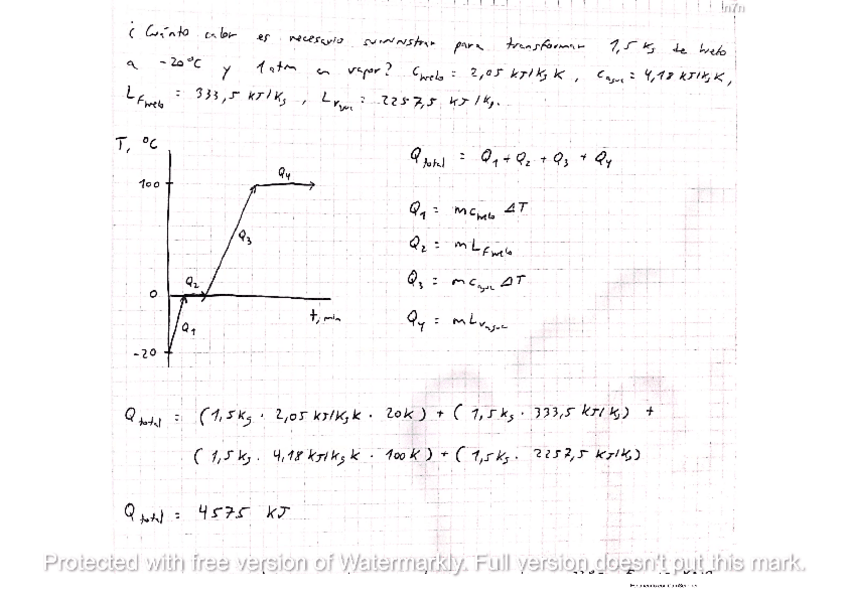 ¿Cuánto calor es necesario suministrar para transformar 1,5 kg de hielo
a -20°C y 1 atm en vapor? C hielo = 2,05 kJ/kg K, C agua = 4,18 kJ/kg K,
L F hielo = 333,5 kJ/kg, L V agua = 2257,5 kJ/kg.
T, °C
100
0
-20
Q1
Q2
Q3
Q4
t, min
Q total = Q1 + Q2 + Q3 + Q4
Q1 = m C hielo ΔT
Q2 = m L F hielo
Q3 = m C agua ΔT
Q4 = m L V agua
Q total = (1,5 kg · 2,05 kJ/kg K · 20K) + (1,5 kg · 333,5 kJ/kg) +
(1,5 kg · 4,18 kJ/kg K · 100K) + (1,5 kg · 2257,5 kJ/kg)
Q total = 4575 kJ
Protected with free version of Watermarkly. Full version doesn't put this mark.